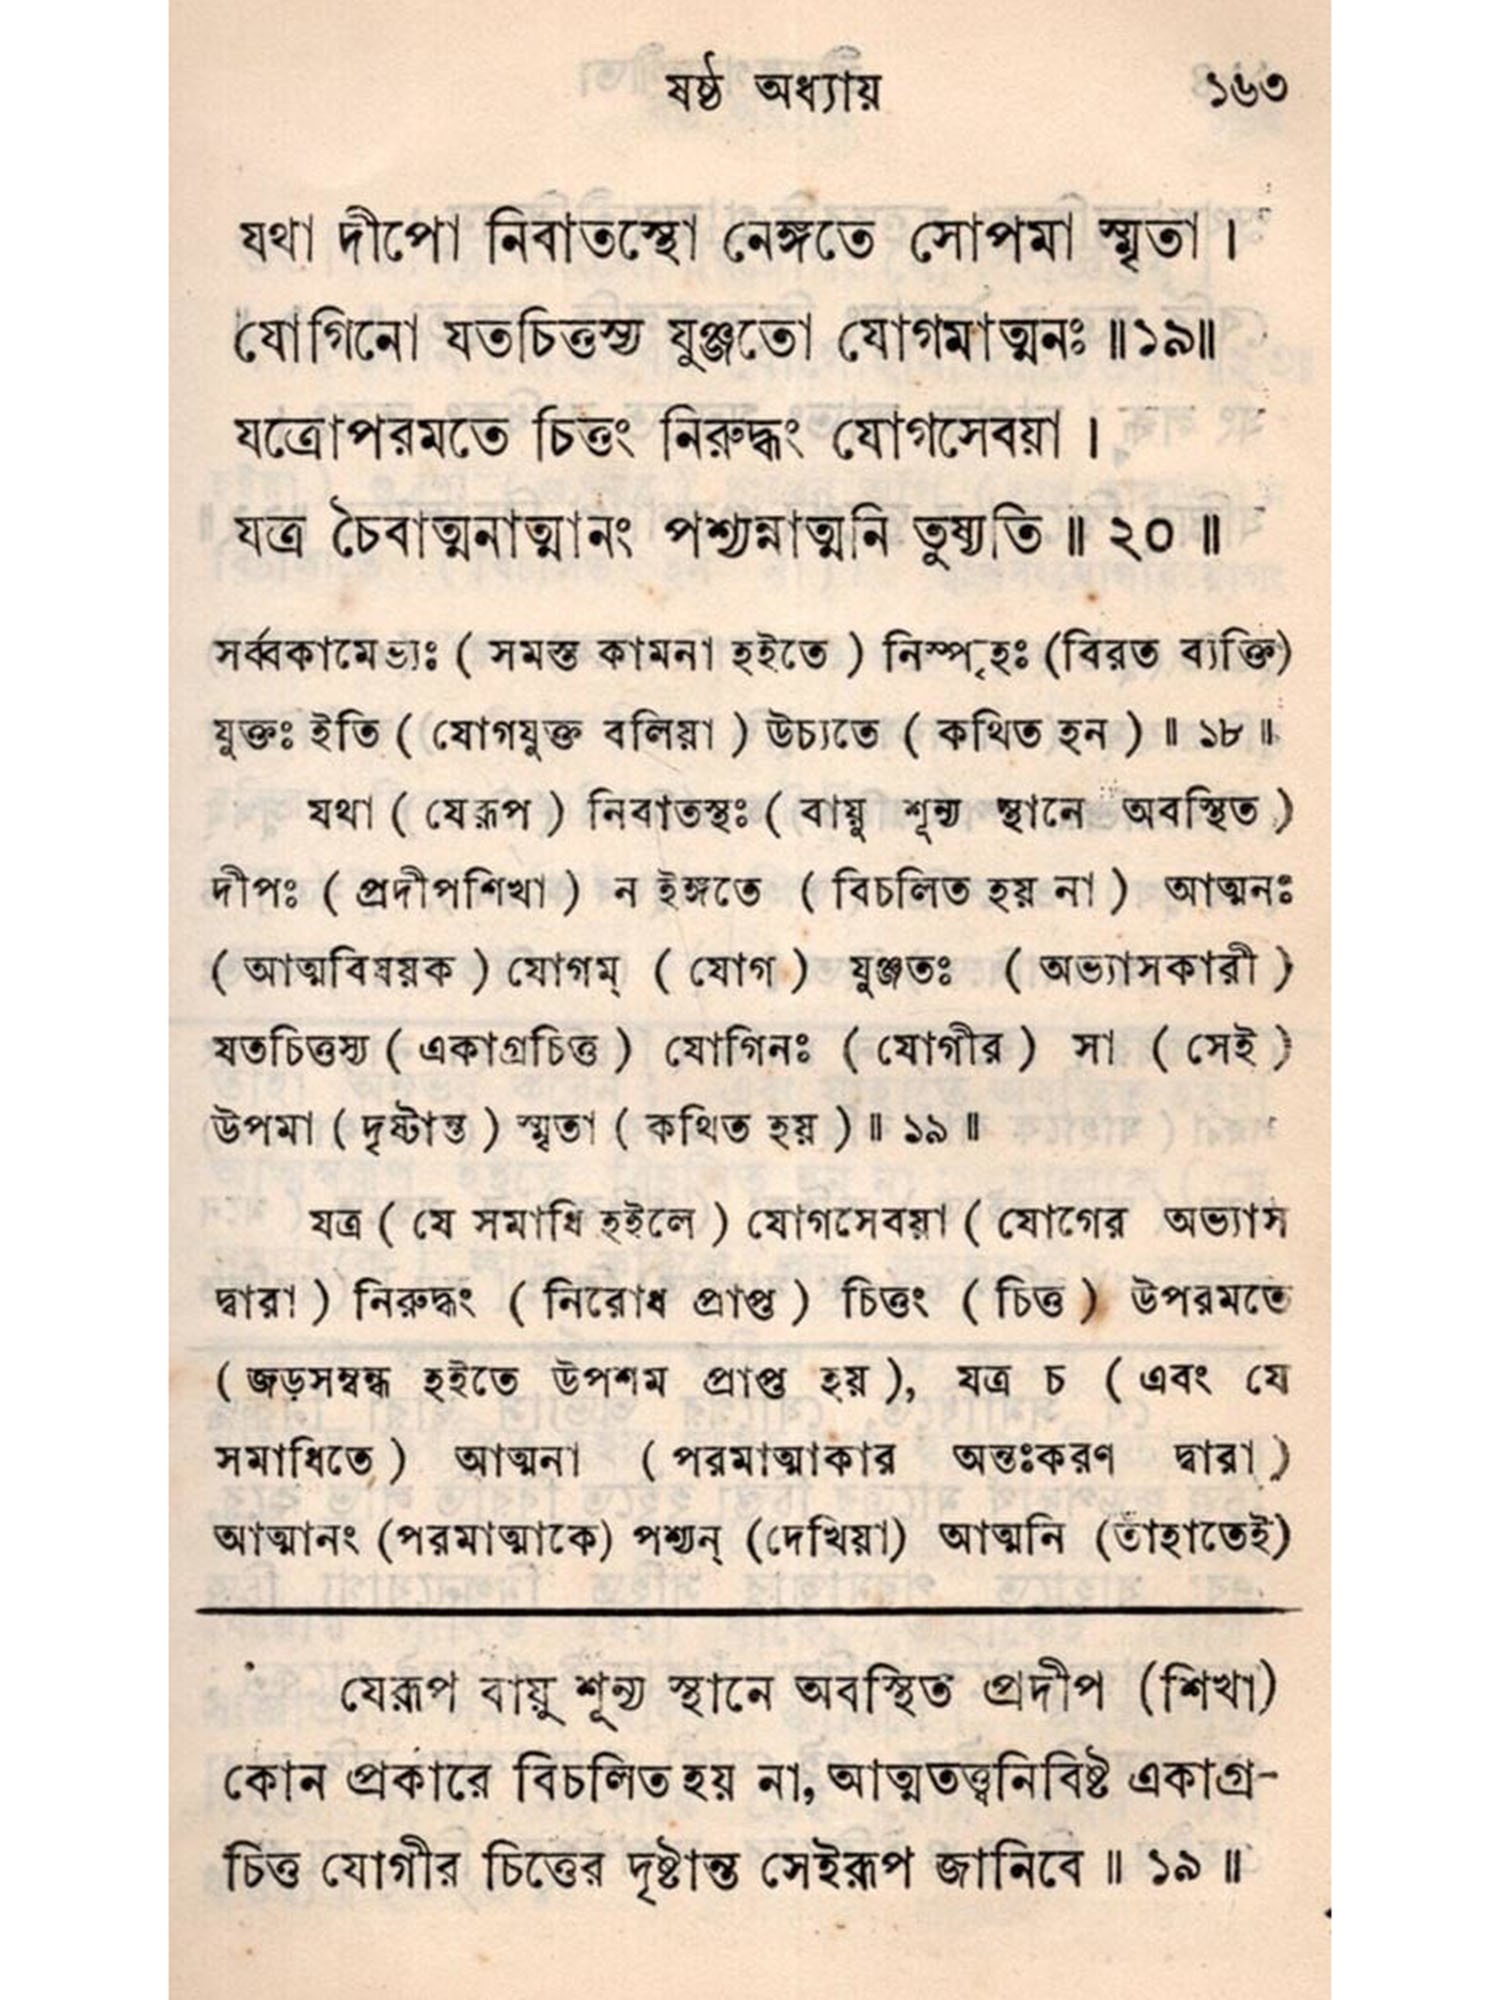 ষষ্ঠ অধ্যায় ১৬৩
যথা দীপো নিবাতস্থো নেঙ্গতে সোপমা স্মৃতা ।
যোগিনো যতচিত্তস্য যুঞ্জতো যোগমাত্মনঃ ॥১৯॥
যত্রোপরমতে চিত্তং নিরুদ্ধং যোগসেবয়া ।
যত্র চৈবাত্মনাত্মানং পশ্যন্নাত্মনি তুষ্যতি ॥ ২০ ॥
সর্ব্বকামেভ্যঃ ( সমস্ত কামনা হইতে ) নিস্পৃহঃ (বিরত ব্যক্তি)
যুক্তঃ ইতি ( যোগযুক্ত বলিয়া ) উচ্যতে ( কথিত হন ) ॥ ১৮ ॥
যথা ( যেরূপ ) নিবাতস্থঃ ( বায়ু শূন্য স্থানে অবস্থিত )
দীপঃ ( প্রদীপশিখা ) ন ইঙ্গতে ( বিচলিত হয় না ) আত্মনঃ
( আত্মবিষয়ক ) যোগম্ ( যোগ ) যুঞ্জতঃ ( অভ্যাসকারী )
যতচিত্তস্য ( একাগ্রচিত্ত ) যোগিনঃ ( যোগীর ) সা ( সেই )
উপমা ( দৃষ্টান্ত ) স্মৃতা ( কথিত হয় ) ॥ ১৯ ॥
যত্র ( যে সমাধি হইলে ) যোগসেবয়া ( যোগের অভ্যাস
দ্বারা ) নিরুদ্ধং ( নিরোধ প্রাপ্ত ) চিত্তং ( চিত্ত ) উপরমতে
( জড়সম্বন্ধ হইতে উপশম প্রাপ্ত হয় ), যত্র চ ( এবং যে
সমাধিতে ) আত্মনা ( পরমাত্মাকার অন্তঃকরণ দ্বারা )
আত্মানং (পরমাত্মাকে) পশ্যন্ (দেখিয়া) আত্মনি (তাঁহাতেই)
যেরূপ বায়ু শূন্য স্থানে অবস্থিত প্রদীপ (শিখা)
কোন প্রকারে বিচলিত হয় না, আত্মতত্ত্বনিবিষ্ট একাগ্র-
চিত্ত যোগীর চিত্তের দৃষ্টান্ত সেইরূপ জানিবে ॥ ১৯ ॥